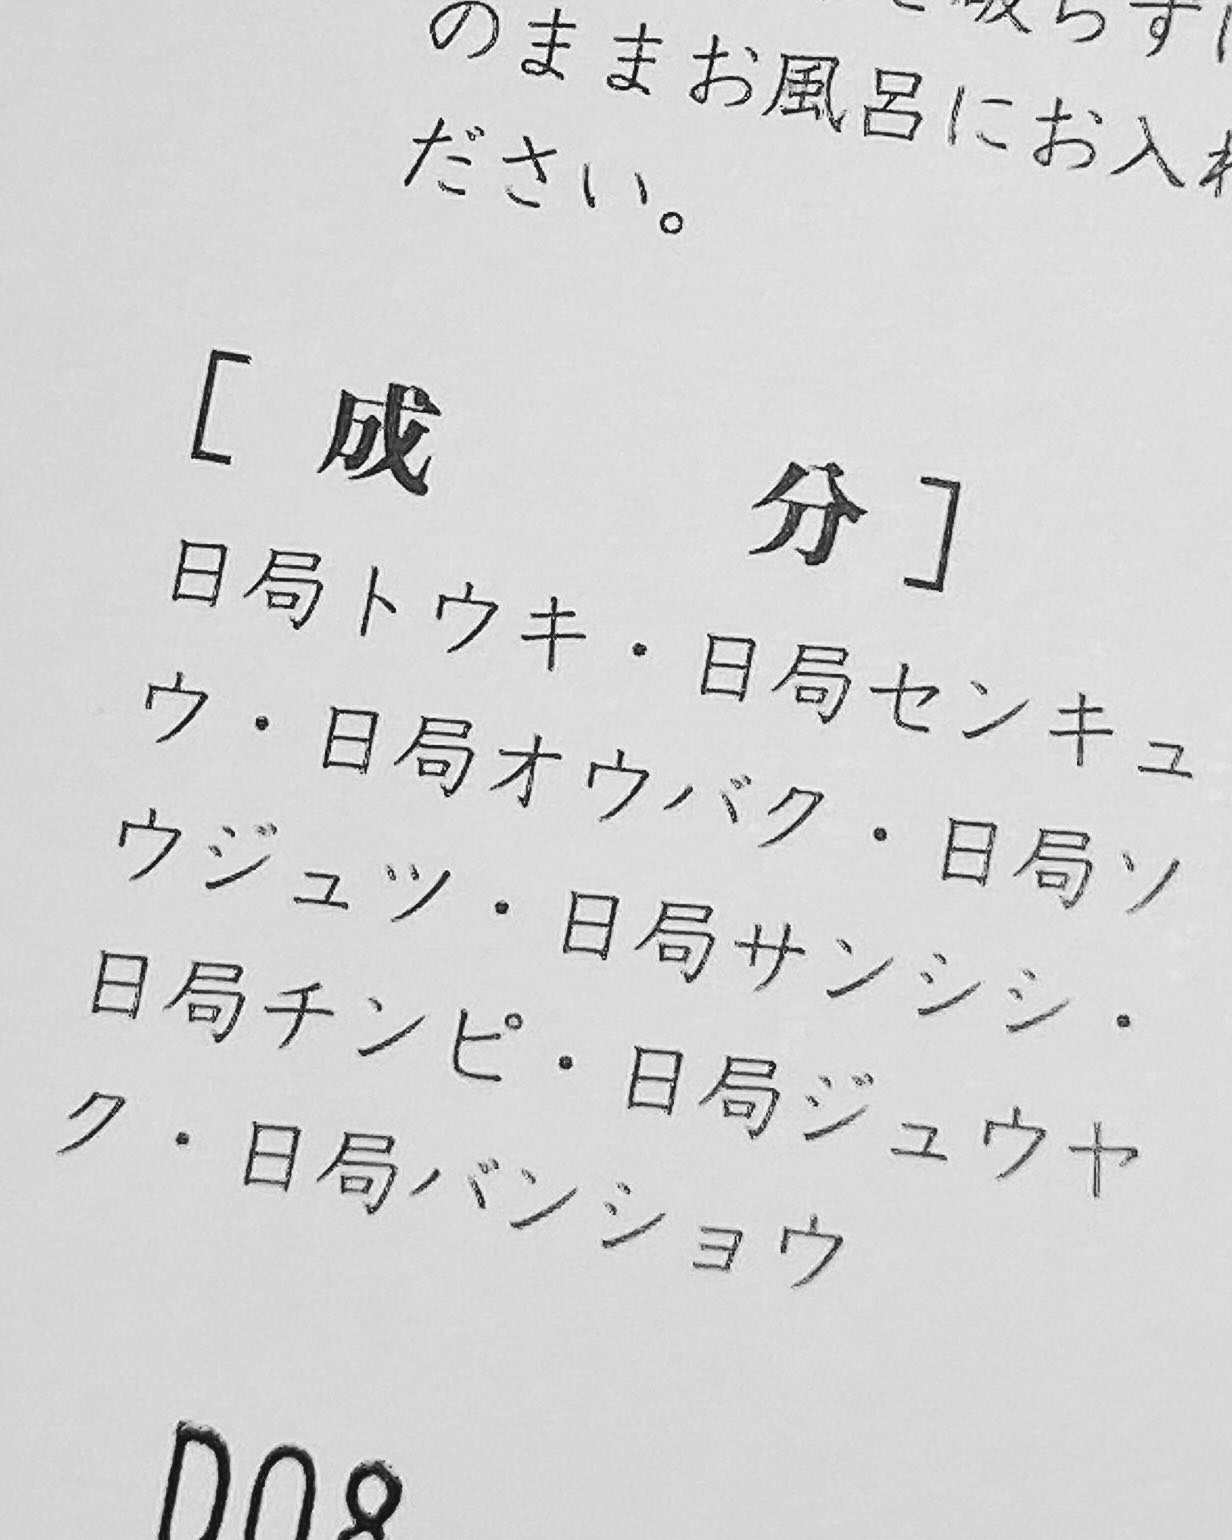 を破らずに
のままお風呂にお入れ
ださい。
[成　　　分]
日局トウキ・日局センキュ
ウ・日局オウバク・日局ソ
ウジュツ・日局サンシシ・
日局チンピ・日局ジュウヤ
ク・日局バンショウ
D08